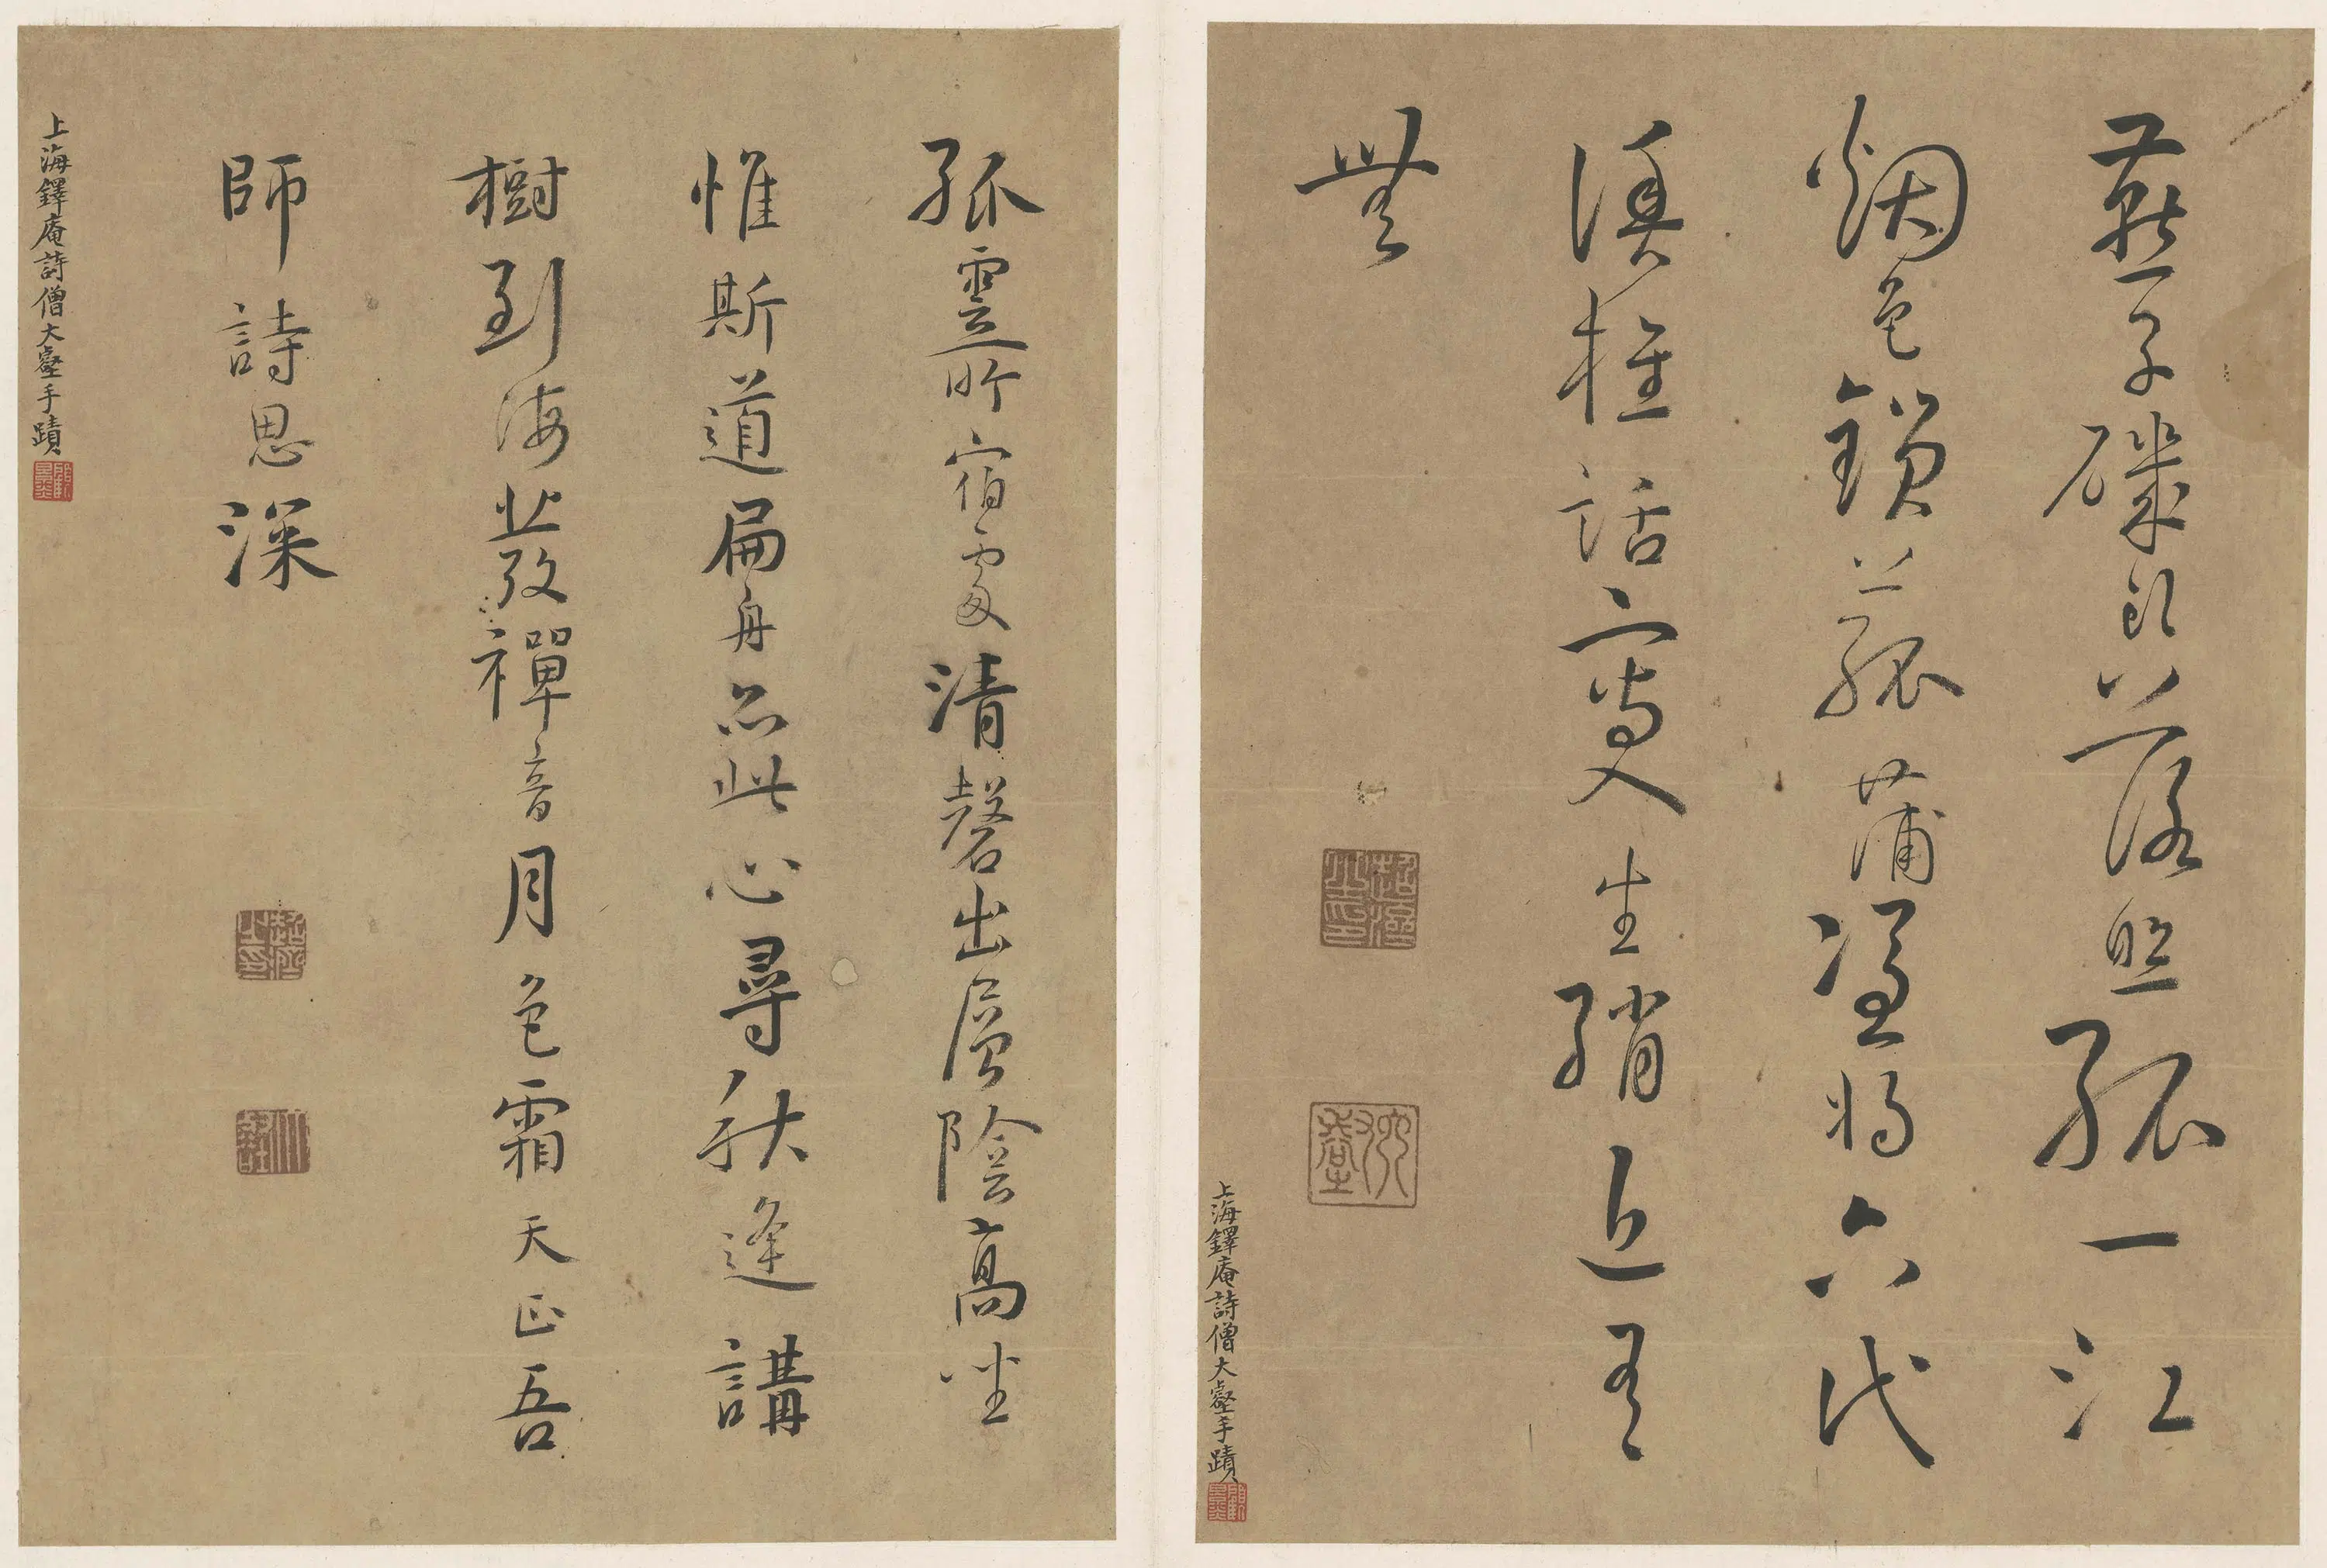 燕子磯頭落照孤一江
烟色鎖菰蒲憑將六代
漁樵話寫入生綃近有
無
上海鐸庵詩僧大壑手蹟
孤雲昨宿處清磬出層陰高坐
惟斯道扁舟亦此心尋秋逢講
樹到海發禪音月色霜天正吾
師詩思深
上海鐸庵詩僧大壑手蹟